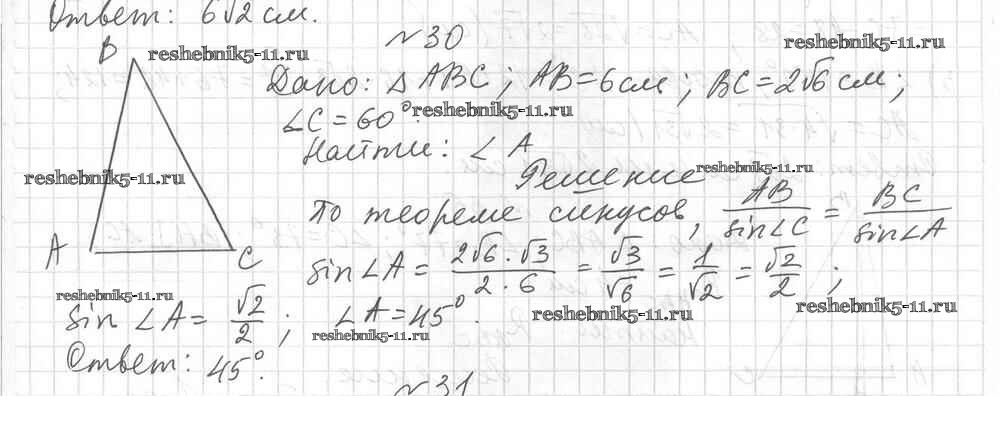 Ответ: 6√2 см.
№30
reshebnik5-11.ru
reshebnik5-11.ru
B
Дано: △ABC; AB=6см; BC=2√6 см;
∠C=60°.
reshebnik5-11.ru
Найти: ∠A
reshebnik5-11.ru
Решение
reshebnik5-11.ru
По теореме синусов, AB/sin∠C = BC/sin∠A
A
C
sin∠A = 2√6·√3/2·6 = √3/√6 = 1/√2 = √2/2;
reshebnik5-11.ru
sin∠A = √2/2; ∠A=45°.
reshebnik5-11.ru
reshebnik5-11.ru
reshebnik5-11.ru
Ответ: 45°.
№31